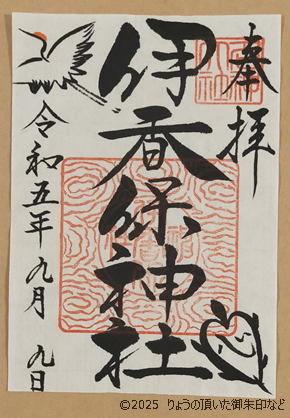 奉拝
伊香保神社
令和五年九月九日
©2025 りょうの頂いた御朱印など